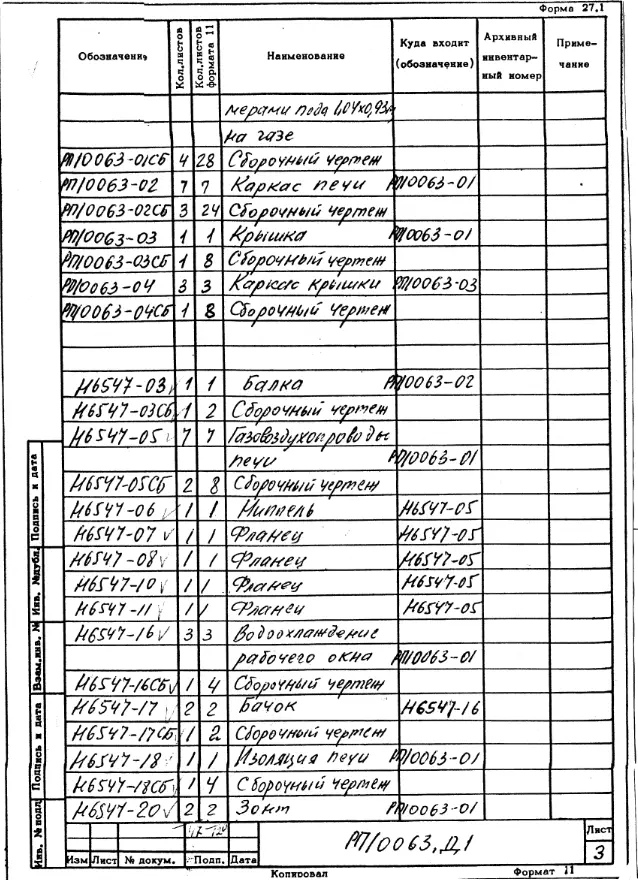 Форма 27.1
Обозначение Кол.листов Кол.листов формата 11 Наименование Куда входит (обозначение) Архивный инвентарный номер Примечание
мерами пода 1,04х0,93м
на газе
РП10063-01СБ 4 28 Сборочный чертеж
РП10063-02 7 7 Каркас печи РП10063-01
РП10063-02СБ 3 24 Сборочный чертеж
РП10063-03 1 1 Крышка РП10063-01
РП10063-03СБ 1 8 Сборочный чертеж
РП10063-04 3 3 Каркас крышки РП10063-03
РП10063-04СБ 1 8 Сборочный чертеж
Н6547-03 1 1 Балка РП10063-02
Н6547-03СБ 1 2 Сборочный чертеж
Н6547-05 7 7 Газовоздухопроводы
печи РП10063-01
Н6547-05СБ 2 8 Сборочный чертеж
Н6547-06 1 1 Ниппель Н6547-05
Н6547-07 1 1 Фланец Н6547-05
Н6547-08 1 1 Фланец Н6547-05
Н6547-10 1 1 Фланец Н6547-05
Н6547-11 1 1 Фланец Н6547-05
Н6547-16 3 3 Водоохлаждение
рабочего окна РП10063-01
Н6547-16СБ 1 4 Сборочный чертеж
Н6547-17 2 2 Бачок Н6547-16
Н6547-17СБ 1 2 Сборочный чертеж
Н6547-18 1 1 Изоляция печи РП10063-01
Н6547-18СБ 1 4 Сборочный чертеж
Н6547-20 2 2 Зонт РП10063-01
Инв. № подл Подпись и дата Взам.инв. № Инв. № дубл. Подпись и дата
РП10063,Д1
Лист
3
Изм Лист № докум. Подп. Дата
Копировал Формат 11